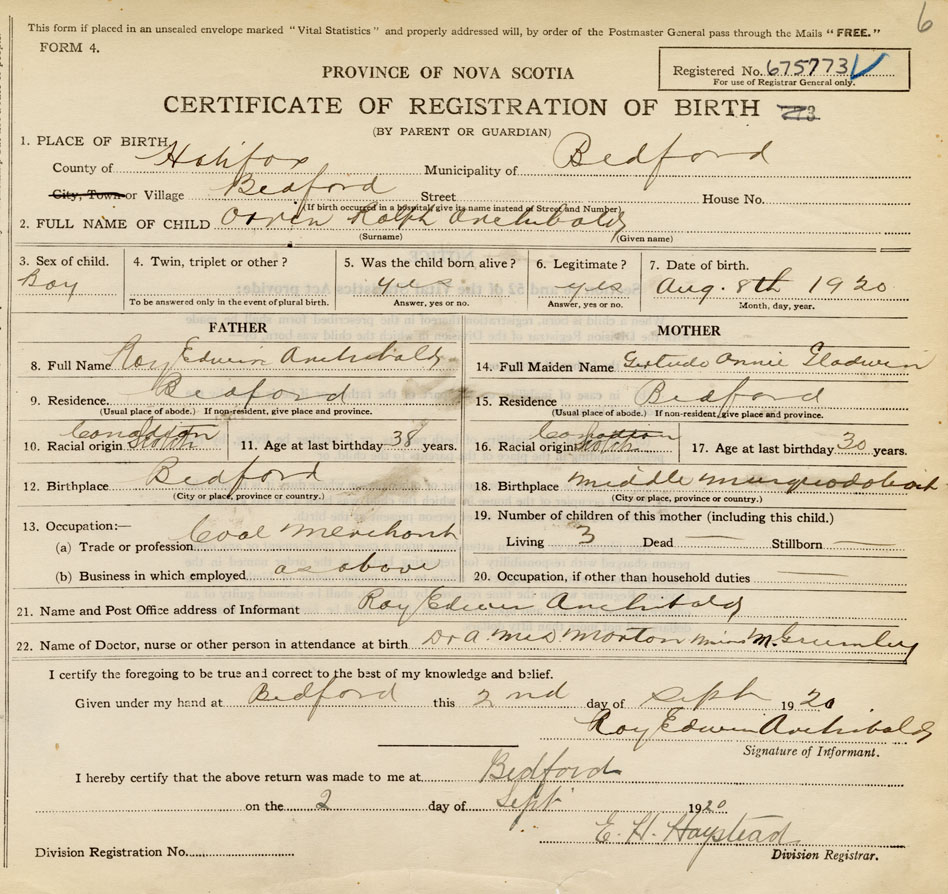 6
This form if placed in an unsealed envelope marked "Vital Statistics" and properly addressed will, by order of the Postmaster General pass through the Mails "FREE."
FORM 4.
Registered No. 675773
For use of Registrar General only.
PROVINCE OF NOVA SCOTIA
CERTIFICATE OF REGISTRATION OF BIRTH 773
(BY PARENT OR GUARDIAN)
1. PLACE OF BIRTH
County of Halifax Municipality of Bedford
City, Town or Village Bedford Street House No.
(If birth occurred in a hospital give its name instead of Street and Number)
2. FULL NAME OF CHILD Orren Ralph Archibald
(Surname) (Given name)
3. Sex of child. 4. Twin, triplet or other? 5. Was the child born alive? 6. Legitimate? 7. Date of birth.
Boy yes yes Aug. 8th 1920
To be answered only in the event of plural birth. Answer, yes or no. Answer, yes or no. Month, day, year.
FATHER MOTHER
8. Full Name Roy Edwin Archibald 14. Full Maiden Name Gertrude Annie Gladwin
9. Residence. Bedford 15. Residence Bedford
(Usual place of abode.) If non-resident, give place and province. (Usual place of abode.) If non-resident, give place and province.
10. Racial origin Scotch 11. Age at last birthday 38 years. 16. Racial origin Scotch 17. Age at last birthday 30 years.
12. Birthplace Bedford 18. Birthplace Middle Musquodoboit
(City or place, province or country.) (City or place, province or country.)
13. Occupation:— 19. Number of children of this mother (including this child.)
(a) Trade or profession Coal Merchant Living 3 Dead — Stillborn —
(b) Business in which employed as above 20. Occupation, if other than household duties —
21. Name and Post Office address of Informant Roy Edwin Archibald
22. Name of Doctor, nurse or other person in attendance at birth Dr Morton
I certify the foregoing to be true and correct to the best of my knowledge and belief.
Given under my hand at Bedford this 2nd day of Sept 1920
Roy Edwin Archibald
Signature of Informant.
I hereby certify that the above return was made to me at Bedford
on the 2 day of Sept 1920
E. H. Haystead
Division Registration No. Division Registrar.